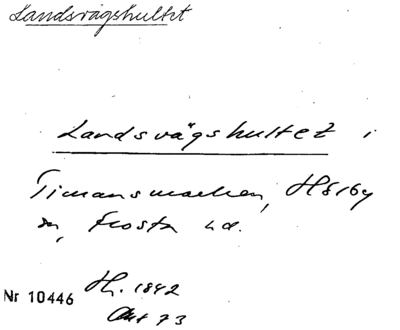 Landsvägshultet
Landsvägshultet i
Timansmarken, Hörby
sn, Frosta hd.
Nr 10446 Hh. 1842
Akt 73